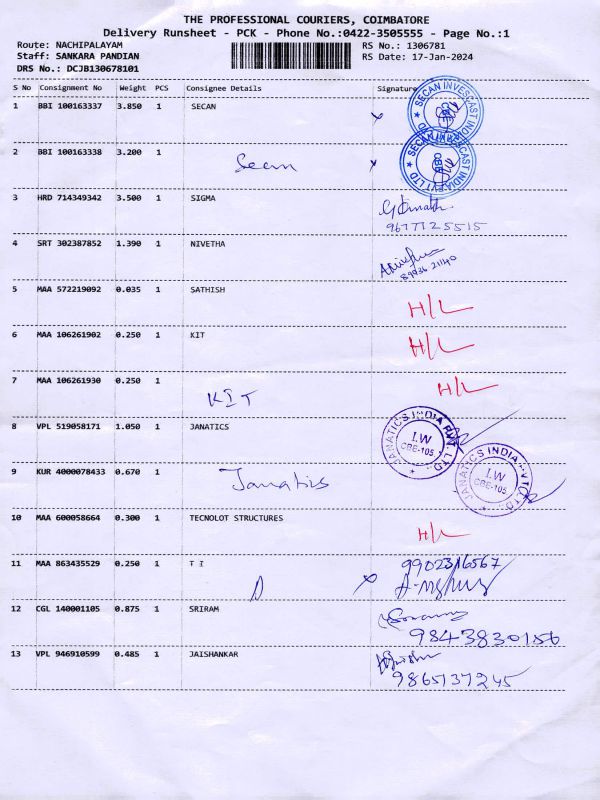 THE PROFESSIONAL COURIERS, COIMBATORE
Delivery Runsheet - PCK - Phone No.:0422-3505555 - Page No.:1
Route: NACHIPALAYAM RS No.: 1306781
Staff: SANKARA PANDIAN RS Date: 17-Jan-2024
DRS No.: DCJB130678101
S No Consignment No Weight PCS Consignee Details Signature
1 BBI 100163337 3.850 1 SECAN
SECAN INVESCAST INDIA PVT LTD CBE
2 BBI 100163338 3.200 1 Secan
SECAN INVESCAST INDIA PVT LTD CBE
3 HRD 714349342 3.500 1 SIGMA
9677725515
4 SRT 302387852 1.390 1 NIVETHA
89036 21140
5 MAA 572219092 0.035 1 SATHISH H/L
6 MAA 106261902 0.250 1 KIT H/L
7 MAA 106261930 0.250 1 KIT H/L
8 VPL 519058171 1.050 1 JANATICS
JANATICS INDIA PVT. LTD. I.W CBE-105
9 KUR 4000078433 0.670 1 Janatics
JANATICS INDIA PVT LTD I.W CBE-105
10 MAA 600058664 0.300 1 TECNOLOT STRUCTURES H/L
11 MAA 863435529 0.250 1 T I 9902316567
12 CGL 140001105 0.875 1 SRIRAM
9843830156
13 VPL 946910599 0.485 1 JAISHANKAR
9865137245